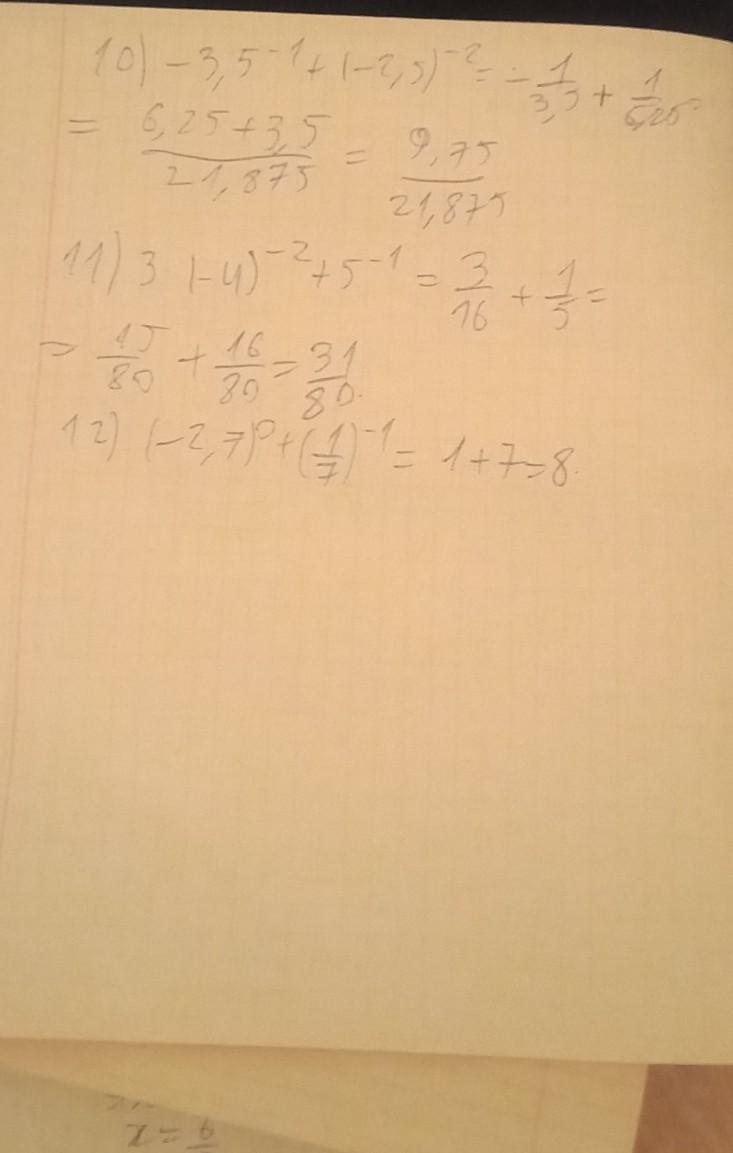 10) -3,5⁻¹ + (-2,5)⁻² = -1/3,5 + 1/6,25
= (6,25+3,5)/21,875 = 9,75/21,875
11) 3 (-4)⁻² + 5⁻¹ = 3/16 + 1/5 =
= 15/80 + 16/80 = 31/80.
12) (-2,7)⁰ + (1/7)⁻¹ = 1+7=8.